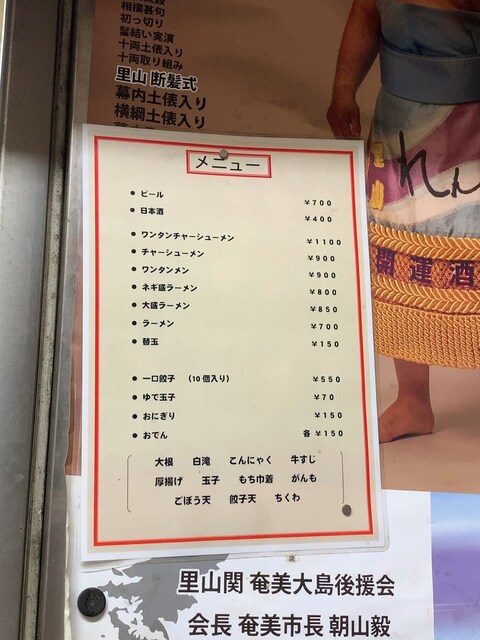 相撲甚句
初っ切り
髷結い実演
十両土俵入り
十両取り組み
里山 断髪式
幕内土俵入り
横綱土俵入り
メニュー
● ビール ￥700
● 日本酒 ￥400
● ワンタンチャーシューメン ￥1100
● チャーシューメン ￥900
● ワンタンメン ￥900
● ネギ盛ラーメン ￥800
● 大盛ラーメン ￥850
● ラーメン ￥700
● 替玉 ￥150
● 一口餃子 （10個入り） ￥550
● ゆで玉子 ￥70
● おにぎり ￥150
● おでん 各￥150
大根 白滝 こんにゃく 牛すじ
厚揚げ 玉子 もち巾着 がんも
ごぼう天 餃子天 ちくわ
れん
開運酒
里山関 奄美大島後援会
会長 奄美市長 朝山毅